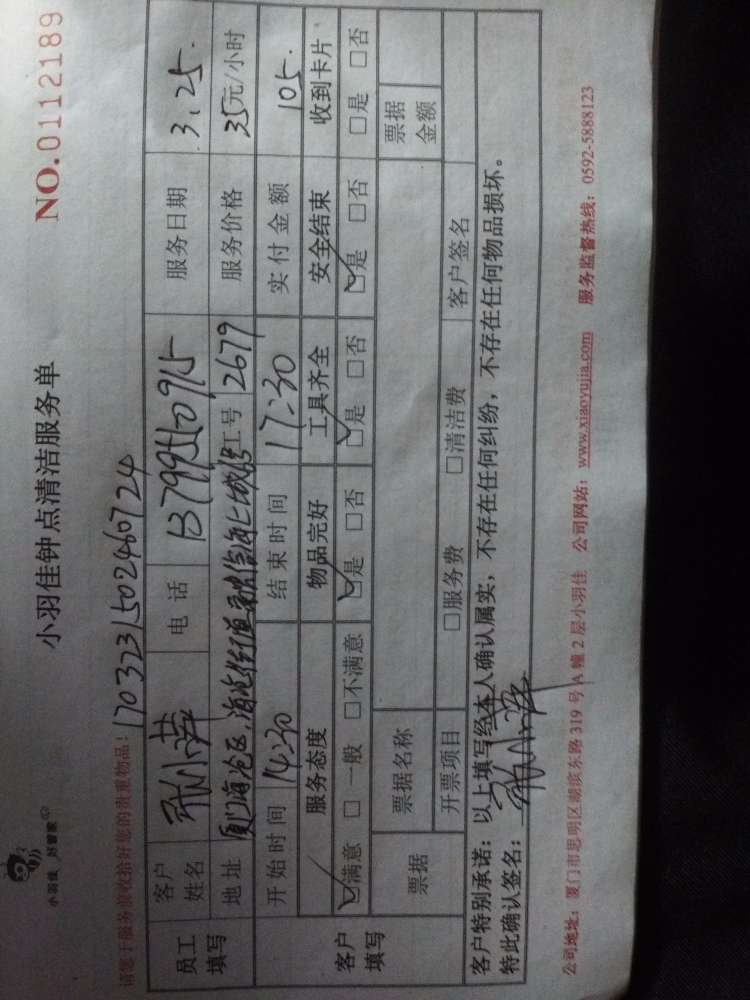 小羽佳 好管家
小羽佳钟点清洁服务单
NO.0112189
请您于服务前收拾好您的贵重物品！170323150246 0724
员工填写 客户姓名 张小萍 电话 13799510915 服务日期 3.25.
地址 厦门海沧区 工号 2679 服务价格 35元/小时
开始时间 14:30 结束时间 17:30 实付金额 105.
客户填写 服务态度 物品完好 工具齐全 安全结束 收到卡片
☑满意 □一般 □不满意 ☑是 □否 ☑是 □否 ☑是 □否 □是 □否
票据 票据名称 票据金额
开票项目 □服务费 □清洁费 客户签名
客户特别承诺：以上填写经本人确认属实，不存在任何纠纷，不存在任何物品损坏。
特此确认签名：张小萍
公司地址：厦门市思明区湖滨东路319号A幢2层小羽佳 公司网站：www.xiaoyujia.com 服务监督热线：0592-5888123